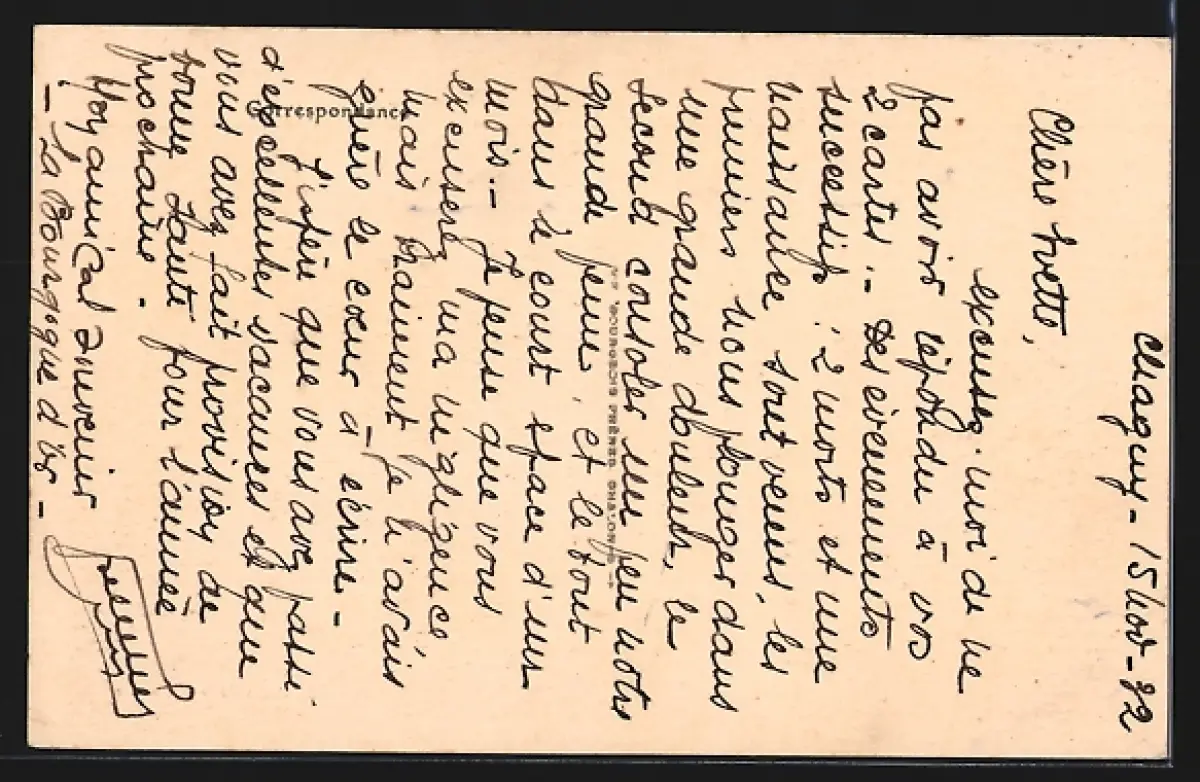 Chagny - 15 Nov - 32
Chère Yvette,
excusez-moi de ne
pas avoir répondu à vos
2 cartes - Des évènements
successifs : 2 morts et une
naissance sont venus, les
premiers nous plonger dans
une grande douleur, le
second consoler un peu notre
grande peine, et le tout
dans le court espace d'un
mois. - Je pense que vous
excuserez ma négligence
mais vraiment je n'avais
guère le cœur à écrire -
J'espère que vous avez passé
d'excellentes vacances et que
vous avez fait provision de
bonne santé pour l'année
prochaine -
Mon amical souvenir
- La Bourgogne d'or -
Correspondance
BOURGEOIS FRÈRES CHALON-S-S